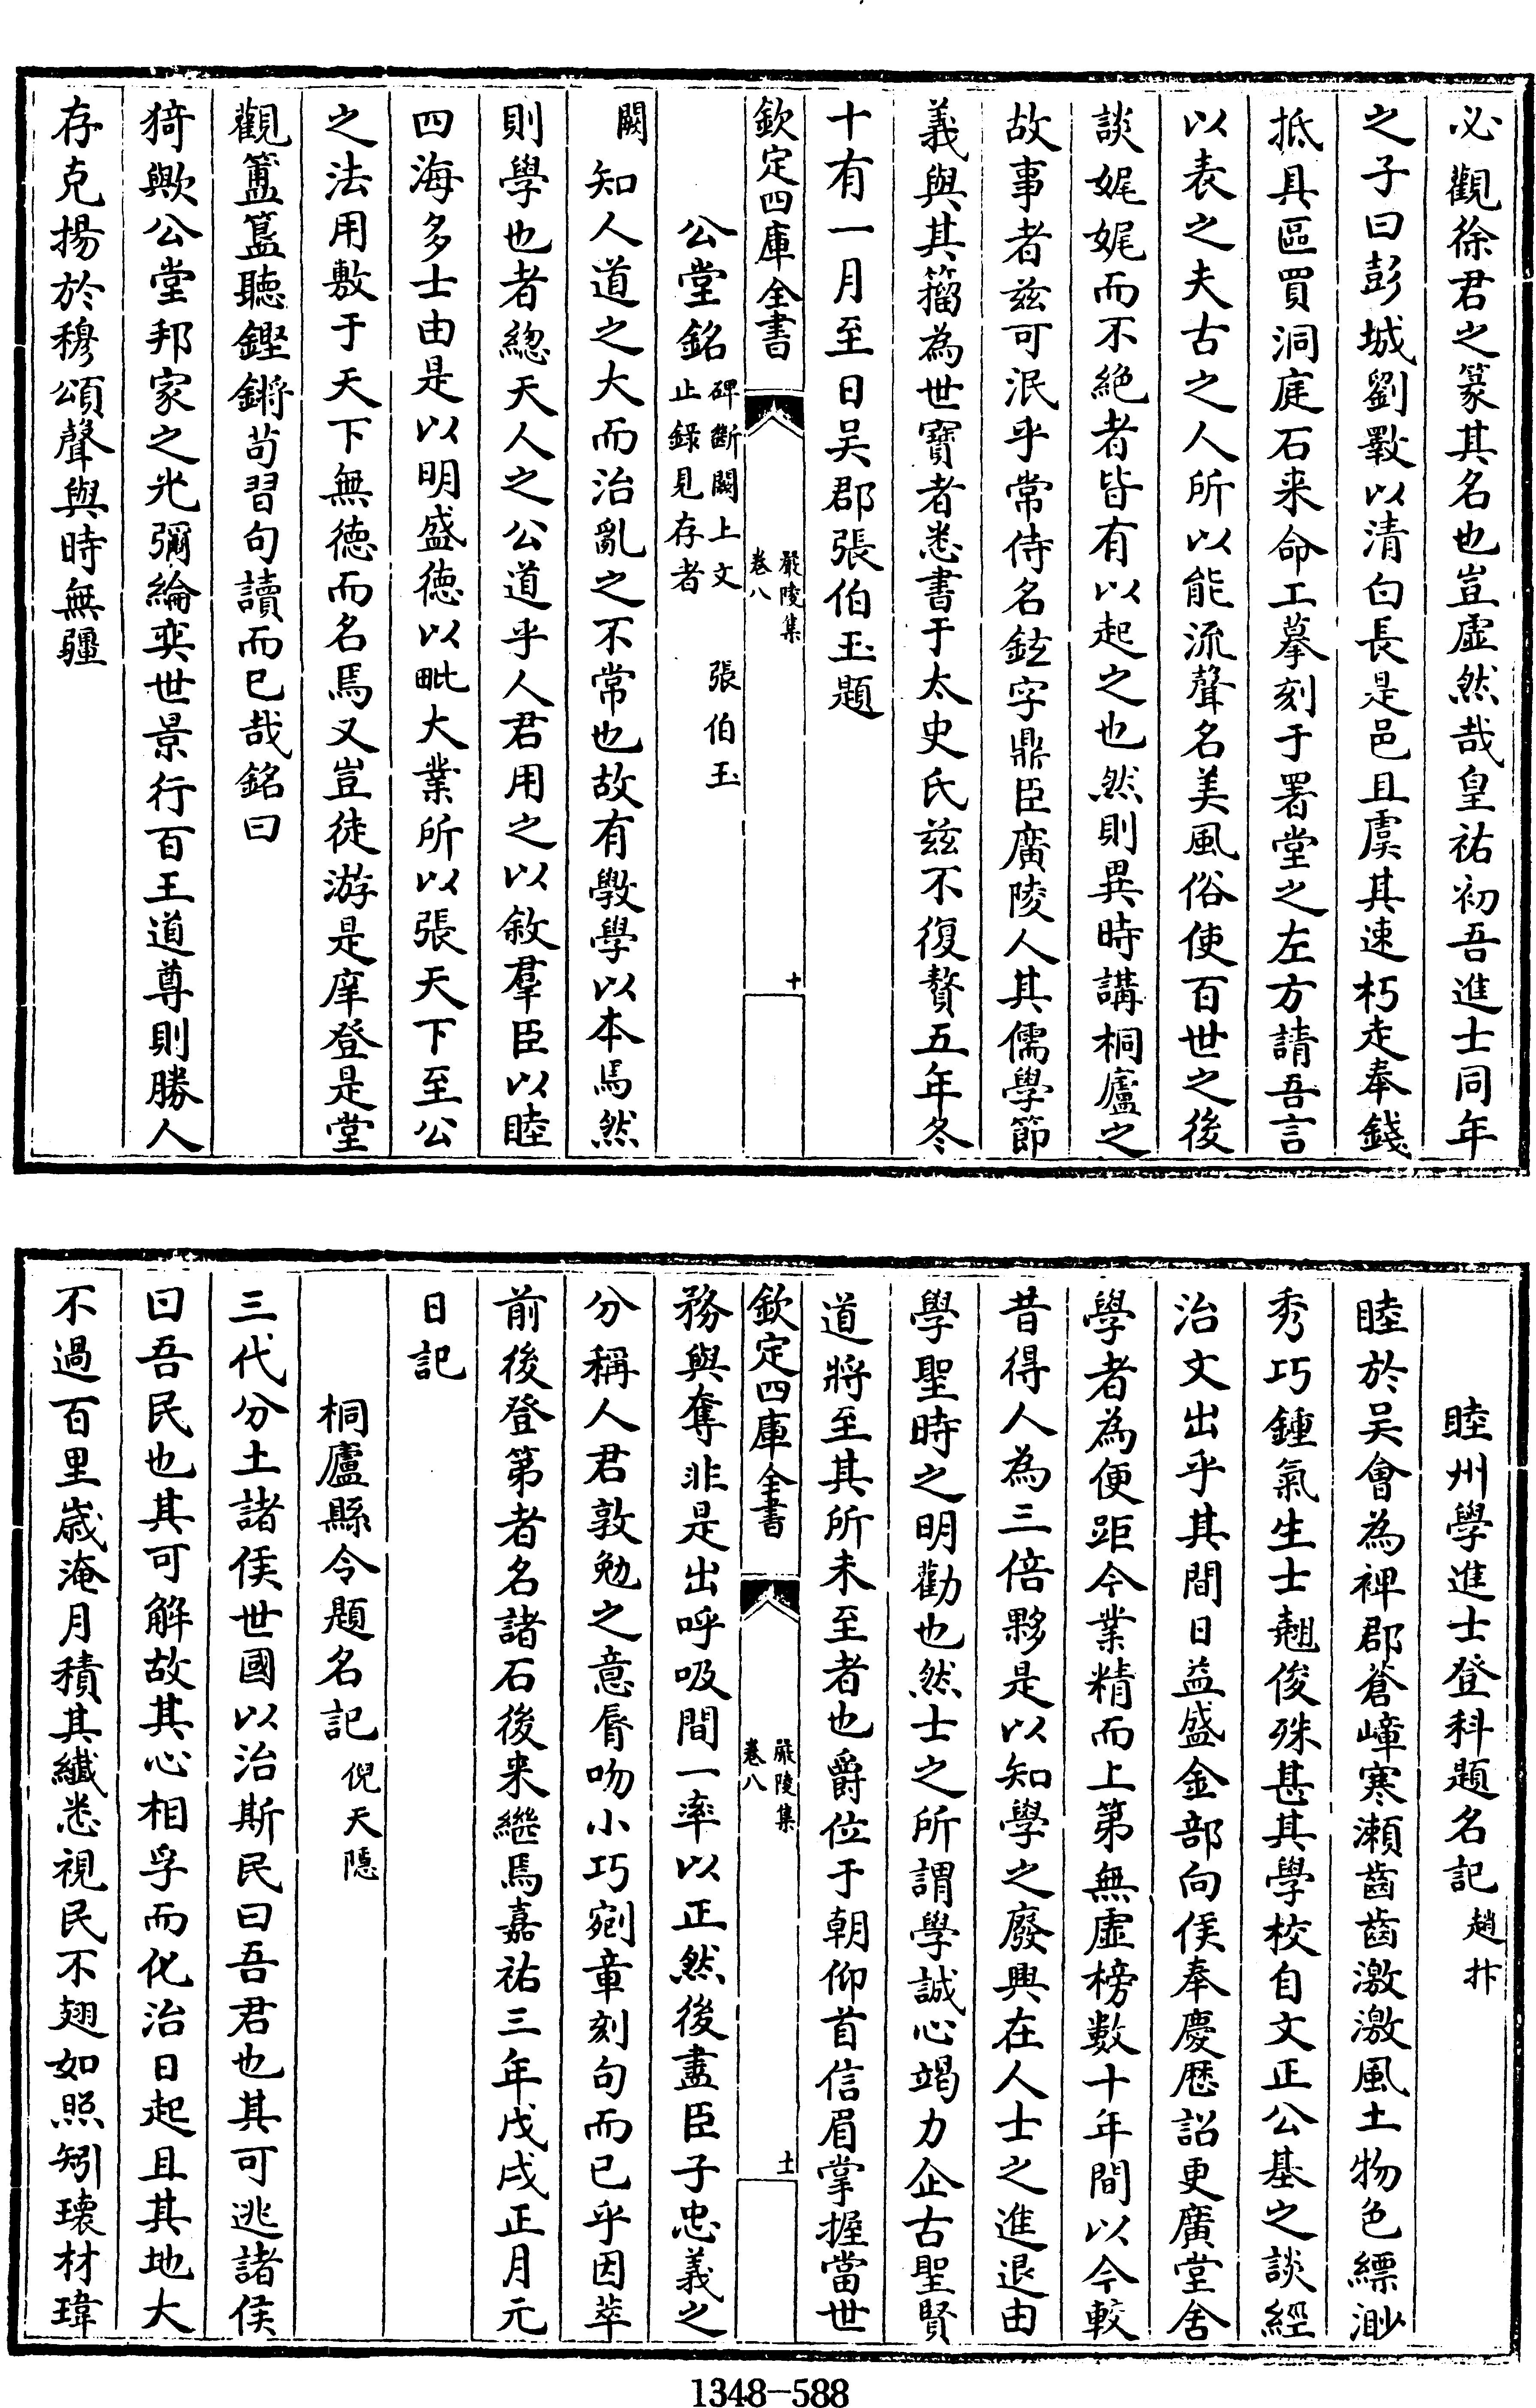 必觀徐君之篆其名也豈虚然哉皇祐初吾進士同年
之子曰彭城劉斁以清白長是邑且虞其速朽走奉錢
抵具區買洞庭石来命工摹刻于署堂之左方請吾言
以表之夫古之人所以能流聲名美風俗使百世之後
談娓娓而不絶者皆有以起之也然則異時講桐廬之
故事者兹可泯乎常侍名鉉字鼎臣廣陵人其儒學節
義與其籀為世寶者悉書于太史氏兹不復贅五年冬
十有一月至日吴郡張伯玉題
欽定四庫全書
嚴陵集
卷八
十
公堂銘碑斷闕上文止錄見存者 張伯玉
闕知人道之大而治亂之不常也故有教學以本焉然
則學也者總天人之公道乎人君用之以敘羣臣以睦
四海多士由是以明盛徳以毗大業所以張天下至公
之法用敷于天下無徳而名焉又豈徒游是庠登是堂
觀簠簋聽鏗鏘茍習句讀而已哉銘曰
猗歟公堂邦家之光彌綸奕世景行百王道尊則勝人
存克揚於穆頌聲與時無疆
睦州學進士登科題名記趙抃
睦於吴會為裨郡蒼嶂寒瀬齒齒激激風土物色縹渺
秀巧鍾氣生士翹俊殊甚其學校自文正公基之談經
治文出乎其間日益盛金部向侯奉慶厯詔更廣堂舍
學者為便距今業精而上第無虚榜數十年間以今較
昔得人為三倍夥是以知學之廢興在人士之進退由
學聖時之明勸也然士之所謂學誠心竭力企古聖賢
道將至其所未至者也爵位于朝仰首信眉掌握當世
欽定四庫全書
嚴陵集
卷八
十一
務與奪非是出呼吸間一率以正然後盡臣子忠義之
分稱人君敦勉之意脣吻小巧剜章刻句而已乎因萃
前後登第者名諸石後来繼焉嘉祐三年戊戌正月元
日記
桐廬縣令題名記倪天隱
三代分土諸侯世國以治斯民曰吾君也其可逃諸侯
曰吾民也其可解故其心相孚而化治日起且其地大
不過百里歳淹月積其纎悉視民不翅如照矧瓌材瑋
1348-588